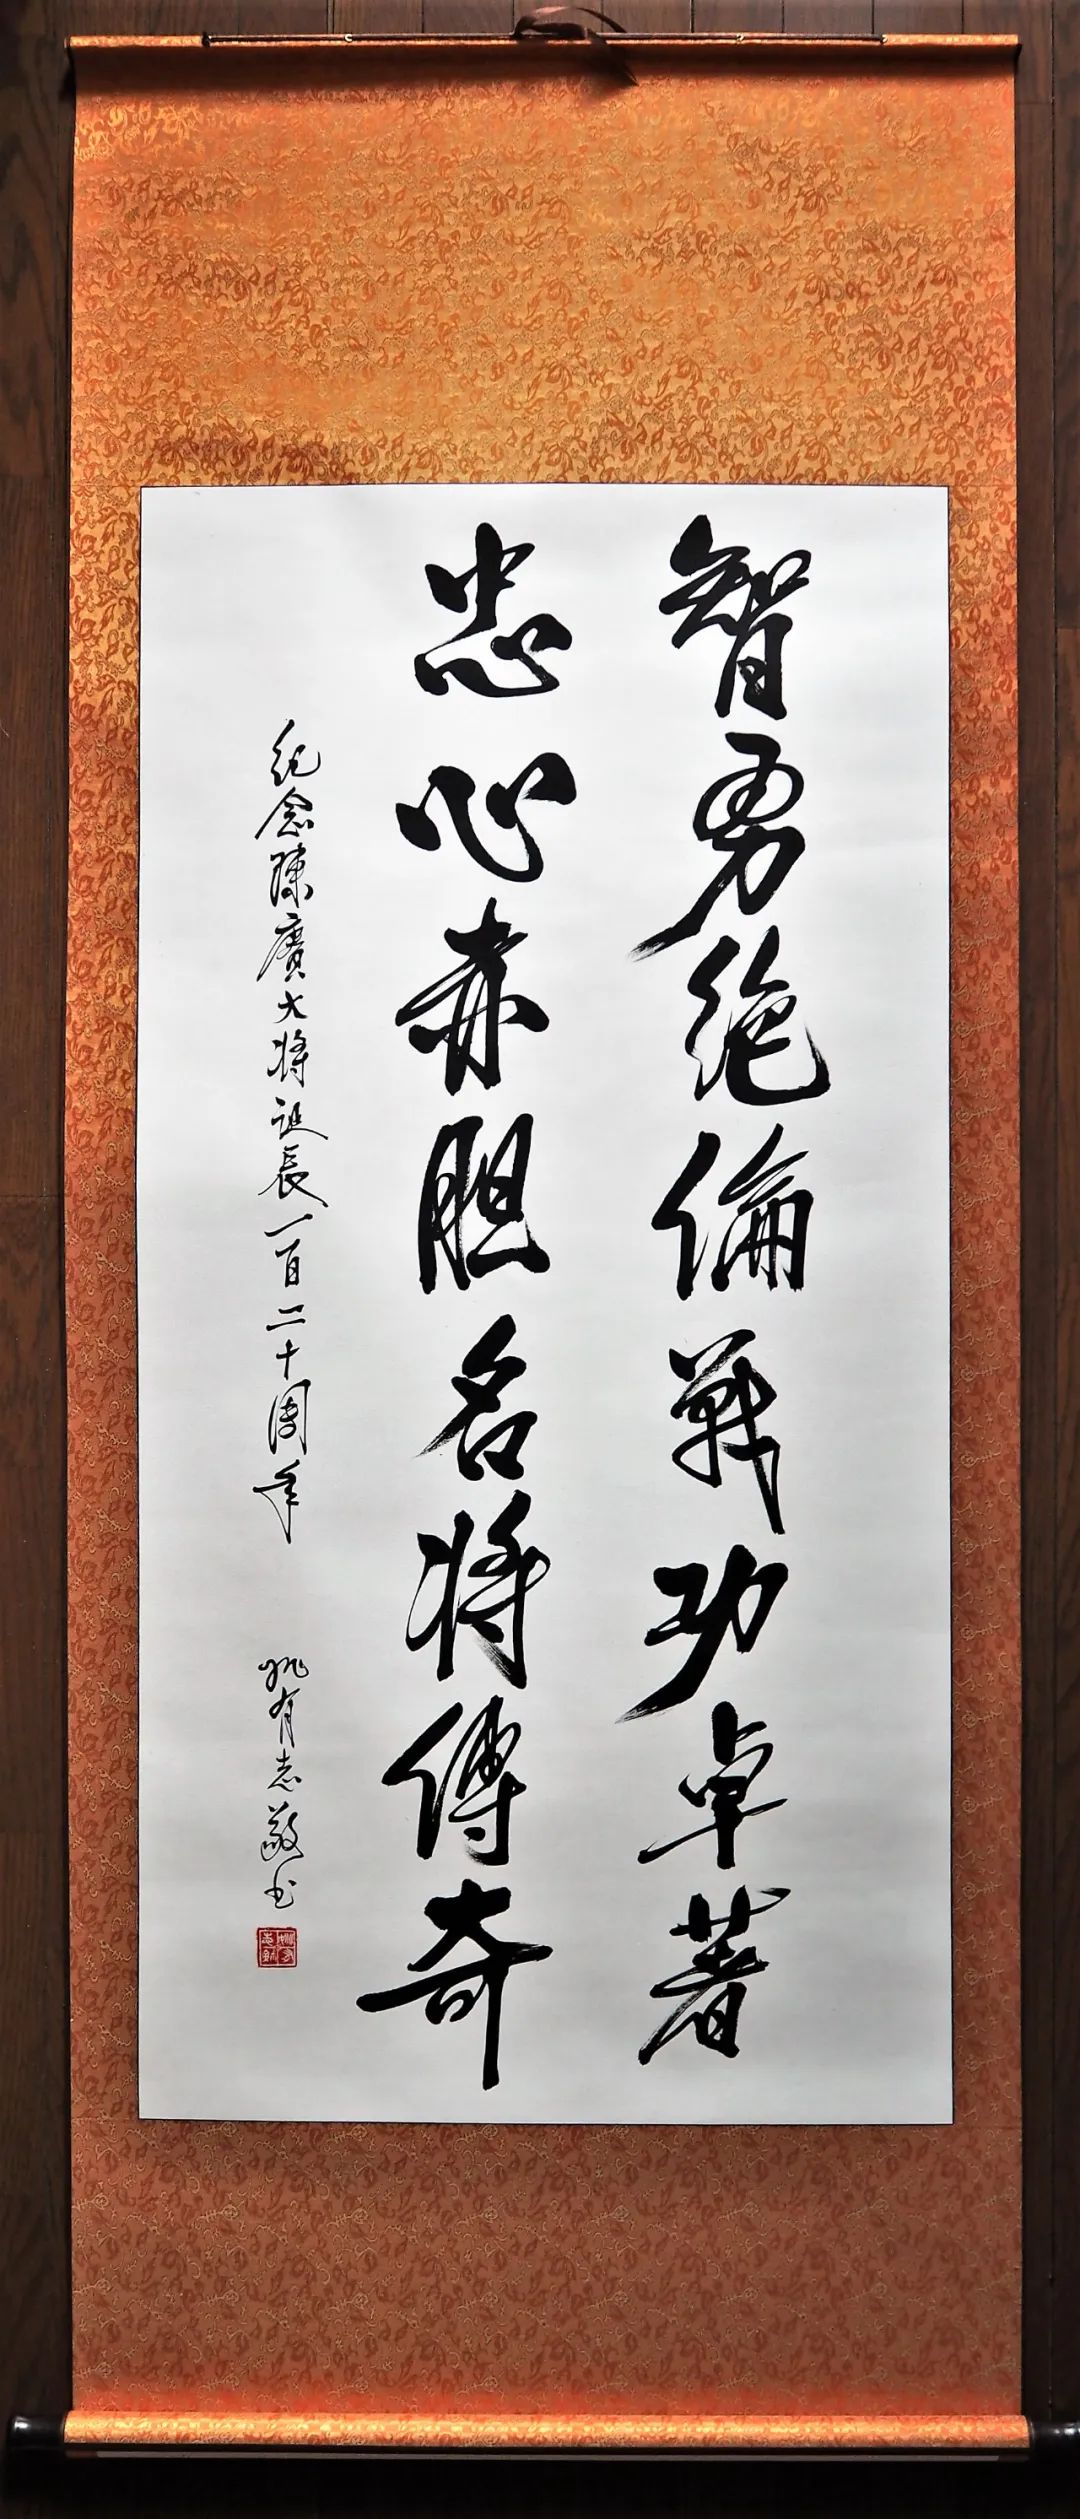 智勇绝倫戰功卓著
忠心赤胆名将傳奇
纪念陳賡大将诞辰一百二十周年
姚有志敬书